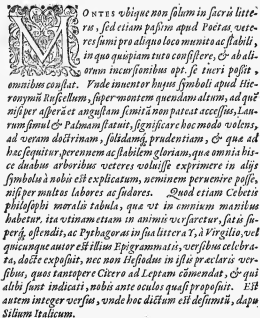 MONTES vbique non solum in sacris litte-
ris, sed etiam passim apud Poëtas vete-
res sumi pro aliquo loco munito ac stabili,
in quo quispiam tuto consistere, & ab ali-
orum incursionibus opt. se tueri possit,
omnibus constat. Vnde inuentor huius symboli apud Hie-
ronymū Ruscellum, super montem quendam altum, ad quē
nisi per aspera et angustam semitā non pateat accessus, Lau-
rum simul & Palmam statuit, significare hoc modo volens,
ad veram doctrinam, solidamq́; prudentiam, & quæ ad
hæc sequitur, perennem ac stabilem gloriam, quæ omnia hi-
ce duabus arboribus veteres voluisse exprimere in alijs
symbolis à nobis est explicatum, neminem peruenire posse,
nisi per multos labores ac sudores. Quod etiam Cebetis
philosophi moralis tabula, quæ vt in omnium manibus
habetur, ita vtinam etiam in animis versaretur, satis su-
perq́; ostendit, ac Pythagoras in sua littera Y, à Virgilio, vel
quicunque autor est illius Epigrammatis, versibus celebra-
ta, docte exposuit, nec non Hesiodus in istis præclaris ver-
sibus, quos tantopere Cicero ad Leptam cōmendat, & qui
alibi sunt indicati, nobis ante oculos quasi proposuit. Est
autem integer versus, vnde hoc dictum est desumtū, apud
Silium Italicum.